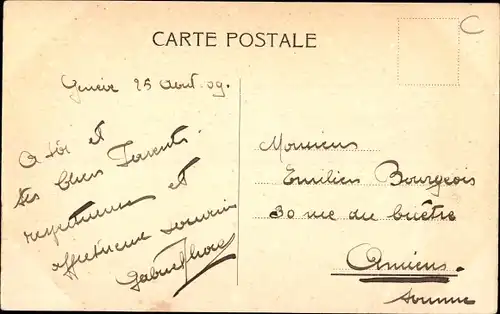 CARTE POSTALE
C
Genève 25 Août 09.
A toi et
tes chers Parents.
respectueux et
affectueux souvenir
Monsieur
Emilien Bourgeois
30 rue du
Amiens.
Somme